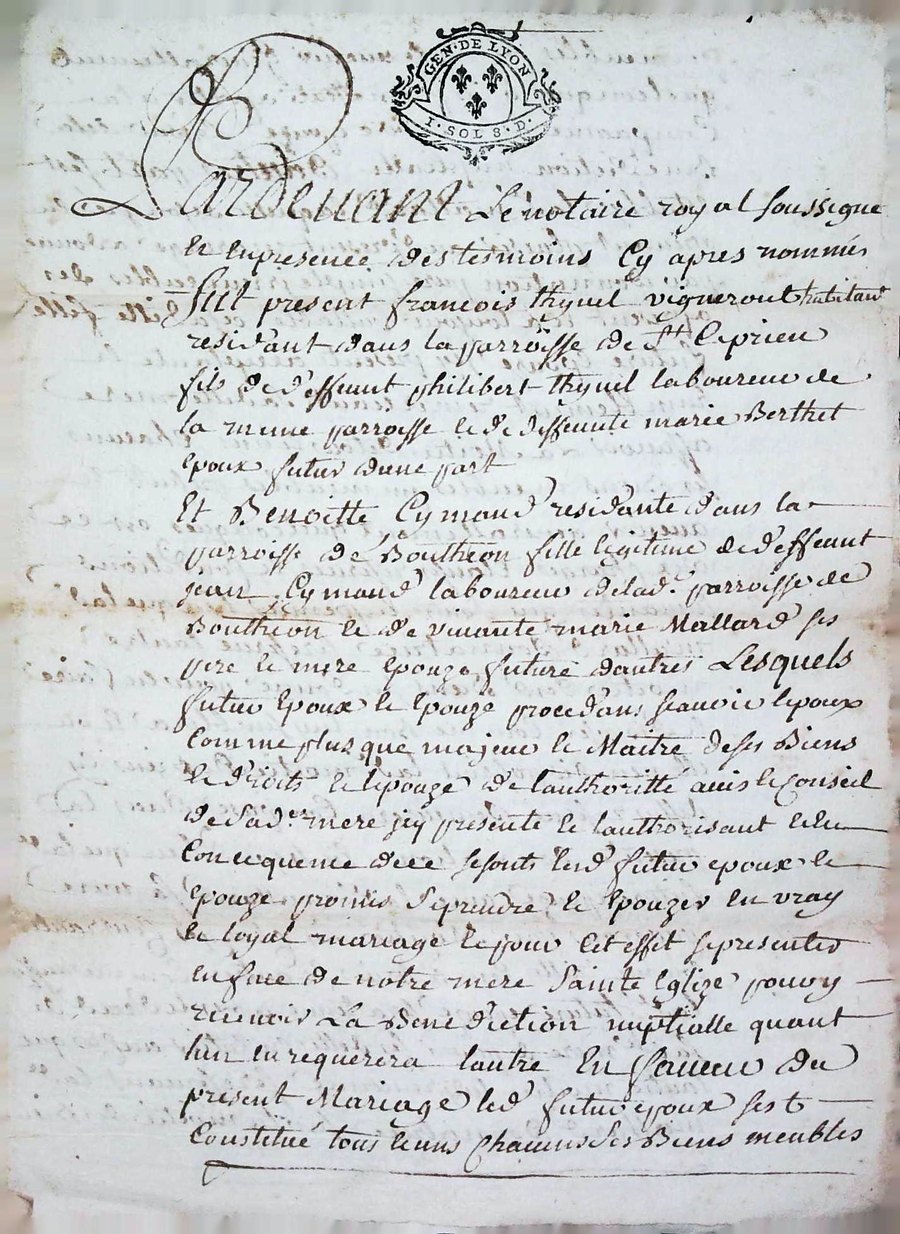 GEN · DE LYON
1 · SOL 8 · D ·
Pardevant Le notaire royal soussigné
et en presence des tesmoins Cy apres nommés
fut present francois thynel vigneront habitant
residant dans la parroisse de St Ciprien
fils de deffeunt philibert thynel laboureur de
la meme parroisse et de deffeunte marie Berthet
epoux futur dune part
Et Benoitte Cymand residante dans la
parroisse de Boutheon fille legitime de deffeunt
jean Cymand laboureur delad. parroisse de
Boutheon et de vivante marie Mallard ses
pere et mere epouze future dautres Lesquels
futur epoux et epouze procedans scavoir lepoux
comme plus que majeur et Maitre de ses Biens
et droits et lepouze de lauthoritté avis et Conseil
de sad. mere jcy presente et lauthorisant
Concequence de ce se sonts led futur epoux et
epouze promis se prendre et epouzer en vray
et loyal mariage et pour cet effet se presenter
en face de notre mere Sainte Eglize pour y
recevoir La Benediction nuptialle quant
lun en requerera lautre En faveur du
present Mariage led futur epoux sest
Constitué tous Chacuns Ses Biens meubles